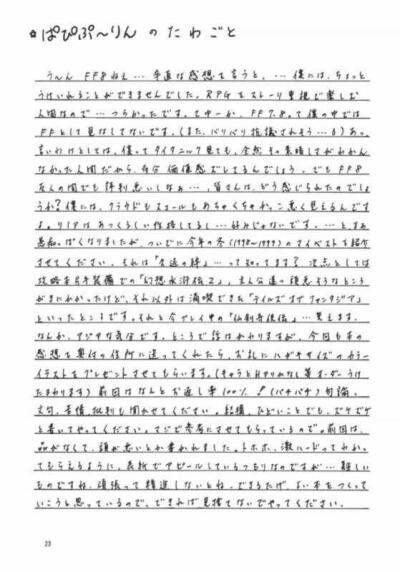 ☆ぱぴぷ〜りんのたわごと
う〜ん FF8ねぇ…率直な感想を言うと、…僕には、ちょっと
うけいれることができませんでした。RPGをストーリー重視で楽しむ
人間なので…つらかったです。もーやー、FF7、8って僕の中では
FFとして見なしてないです。(また、バリバリ抗議されそう…6)あっ、
言いわけとしては、僕ってタイタニック見ても、全然その素晴しさがわかん
なかった人間だから、自分 価値感ズレてるんでしょう。でもFF8
友人の間でも評判悪いしなぁ…、皆さんは、どう感じられたのでしょ
うか?僕には、クラウドもスコールもめちゃくちゃかっこ悪く見えるんです
よ。リノアはあつくるしい性格してるし…好みじゃないです。…と、まあ
愚痴っぽくなりましたが、ついでに今年の冬(1998〜1999)のマイベストを紹介
させてください。それは「久遠の絆」…って知ってます?次点としては
攻略本片手装備での「幻想水滸伝2」、主人公達の頭悪そうなところ
がきにかかったけど、それ以外は満喫できた「テイルズ オブ ファンタジア」
といったところです。それと今プレイ中の「仙剣奇侠伝」…笑えます。
なんか、アジアな気分です。ところで話はかわりますが、今回も本の
感想を奥付の住所に送ってくれたら、お礼にハガキサイズのカラー
イラストをプレゼントさせてもらいます。(キャラとHアリかなし等オーダーうけ
たまわります)前回はなんとお返し率100%!(パチパチ)勿論、
文句、苦情、批判も聞かせてください。結構、ひどいことでも、ズケズケ
と書いてやってください。マジで参考にさせてもらっているので。前回は、
品がなくて、頭が悪いとか書かれました。トホホ、激ハードってわかっ
てもらえるように、表紙でアピールしているつもりなのですが…難しい
ものですね、頑張って精進しないとね。できるだけ、よい本をつくって
いこうと思っているので、できれば見捨てないでやってください。
23